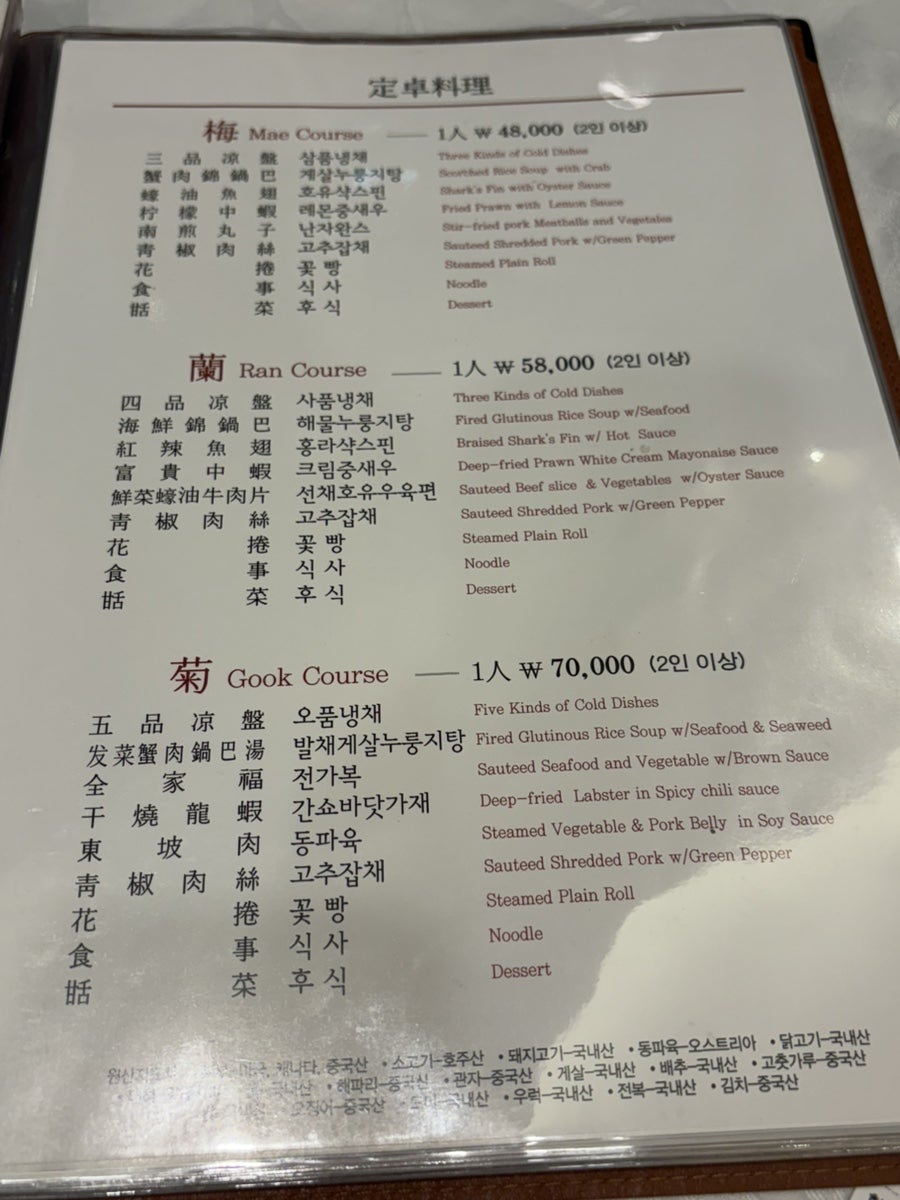 定卓料理
梅 Mae Course 1人 ₩ 48,000 (2인 이상)
三品凉盤 삼품냉채 Three Kinds of Cold Dishes
蟹肉錦鍋巴 게살누룽지탕 Scorthed Rice Soup with Crab
蠔油魚翅 호유샥스핀 Shark's Fin with Oyster Sauce
柠檬中蝦 레몬중새우 Fried Prawn with Lemon Sauce
南煎丸子 난자완스 Stir-fried pork Meatballs and Vegetales
青椒肉絲 고추잡채 Sauteed Shredded Pork w/Green Pepper
花捲 꽃빵 Steamed Plain Roll
食事 식사 Noodle
甛菜 후식 Dessert
蘭 Ran Course 1人 ₩ 58,000 (2인 이상)
四品凉盤 사품냉채 Three Kinds of Cold Dishes
海鮮錦鍋巴 해물누룽지탕 Fired Glutinous Rice Soup w/Seafood
紅辣魚翅 홍라샥스핀 Braised Shark's Fin w/ Hot Sauce
富貴中蝦 크림중새우 Deep-fried Prawn White Cream Mayonaise Sauce
鮮菜蠔油牛肉片 선채호유우육편 Sauteed Beef slice & Vegetables w/Oyster Sauce
青椒肉絲 고추잡채 Sauteed Shredded Pork w/Green Pepper
花捲 꽃빵 Steamed Plain Roll
食事 식사 Noodle
甛菜 후식 Dessert
菊 Gook Course 1人 ₩ 70,000 (2인 이상)
五品凉盤 오품냉채 Five Kinds of Cold Dishes
发菜蟹肉鍋巴湯 발채게살누룽지탕 Fired Glutinous Rice Soup w/Seafood & Seaweed
全家福 전가복 Sauteed Seafood and Vegetable w/Brown Sauce
干燒龍蝦 간쇼바닷가재 Deep-fried Labster in Spicy chili sauce
東坡肉 동파육 Steamed Vegetable & Pork Belly in Soy Sauce
青椒肉絲 고추잡채 Sauteed Shredded Pork w/Green Pepper
花捲 꽃빵 Steamed Plain Roll
食事 식사 Noodle
甛菜 후식 Dessert
중국산 •소고기-호주산 •돼지고기-국내산 •동파육-오스트리아 •닭고기-국내산
•해파리-중국산 •관자-중국산 •게살-국내산 •배추-국내산 •고춧가루-중국산
•우럭-국내산 •전복-국내산 •김치-중국산